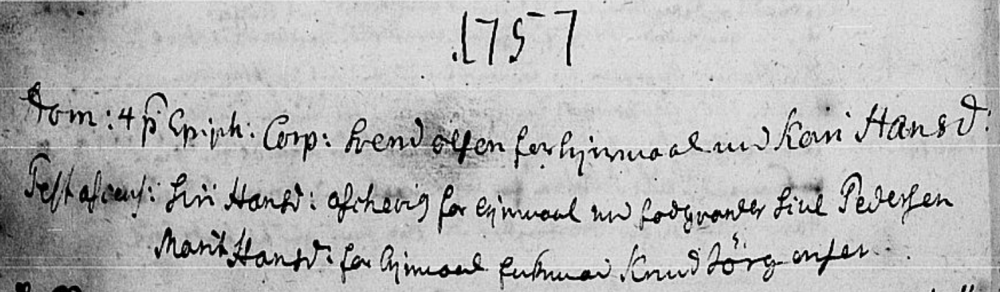 1757
Dom: 4 p Epiph: Corp: Svend olsen for lejermaal med Kari Hansd:
Fest ascens: Siri Hansd: for lejermaal med Siul Pedersen
Marit Hansd: for lejermaal Knud Jörgensen